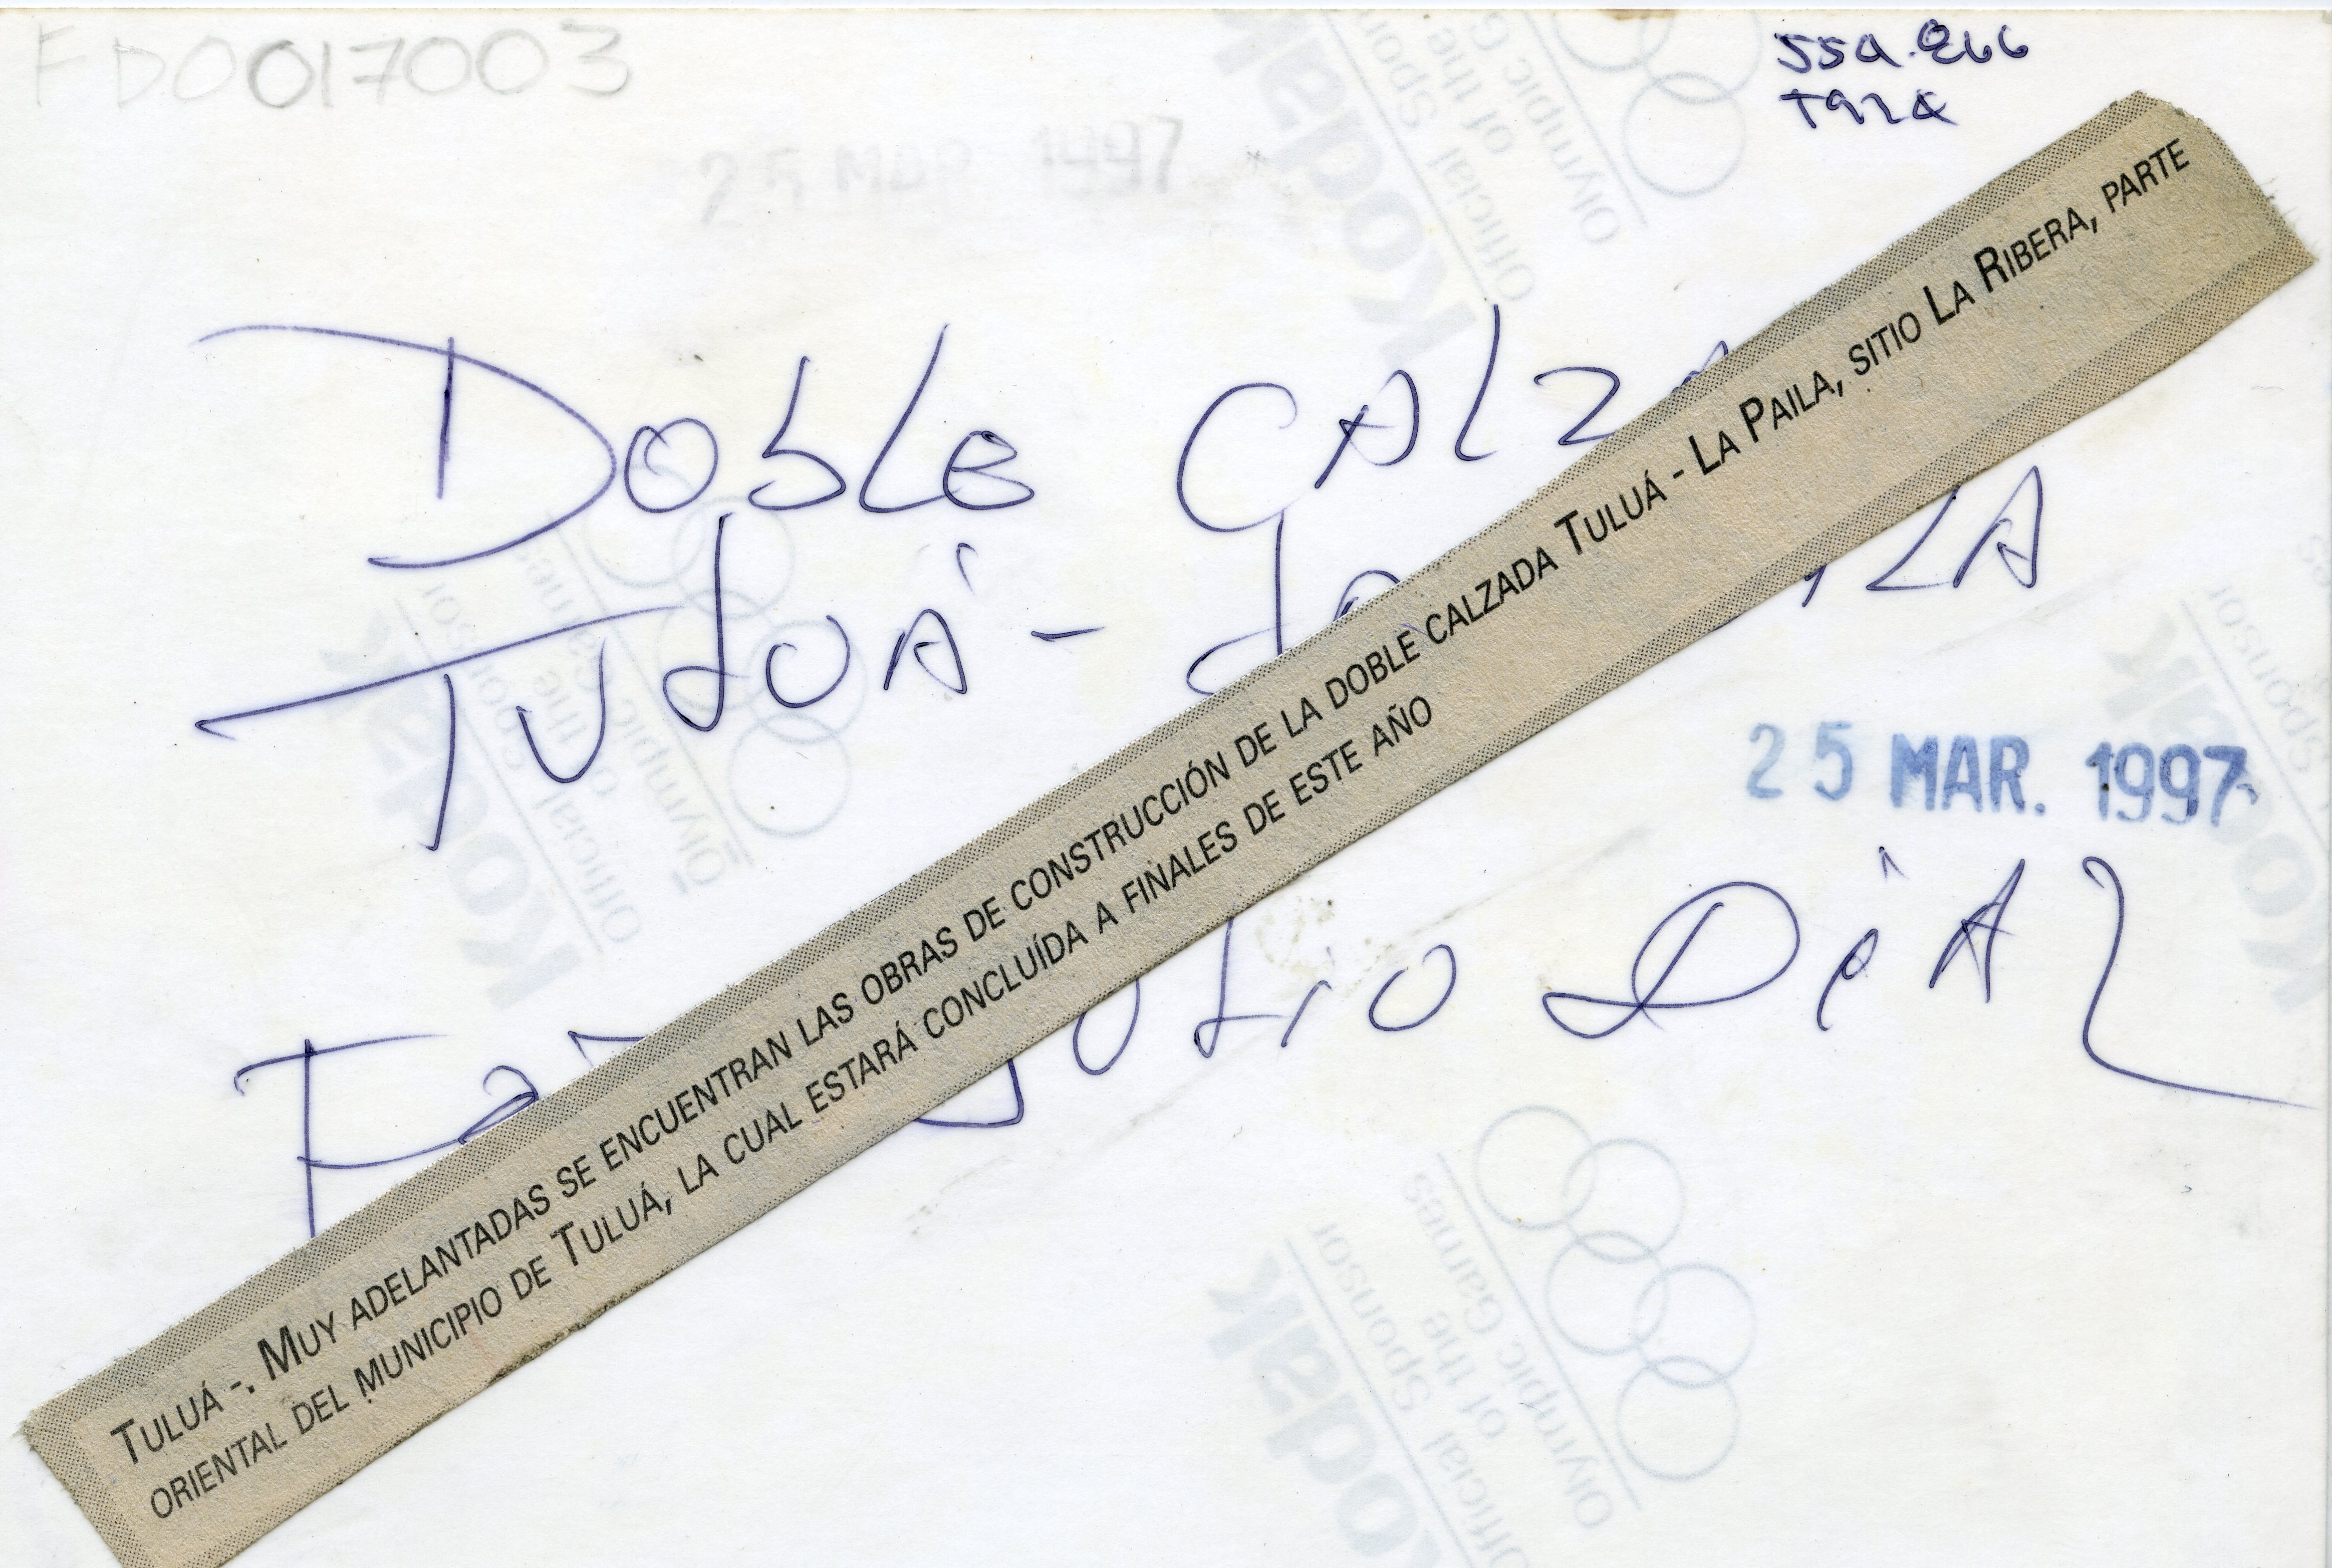 FD0017003
25 MAR 1997
Doble CALZ
TULUÁ - La LA
25 MAR. 1997
JULIO DíAZ
TULUÁ -. MUY ADELANTADAS SE ENCUENTRAN LAS OBRAS DE CONSTRUCCIÓN DE LA DOBLE CALZADA TULUÁ - LA PAILA, SITIO LA RIBERA, PARTE
ORIENTAL DEL MUNICIPIO DE TULUÁ, LA CUAL ESTARÁ CONCLUÍDA A FINALES DE ESTE AÑO
Kodak
Official Sponsor
of the
Olympic Games